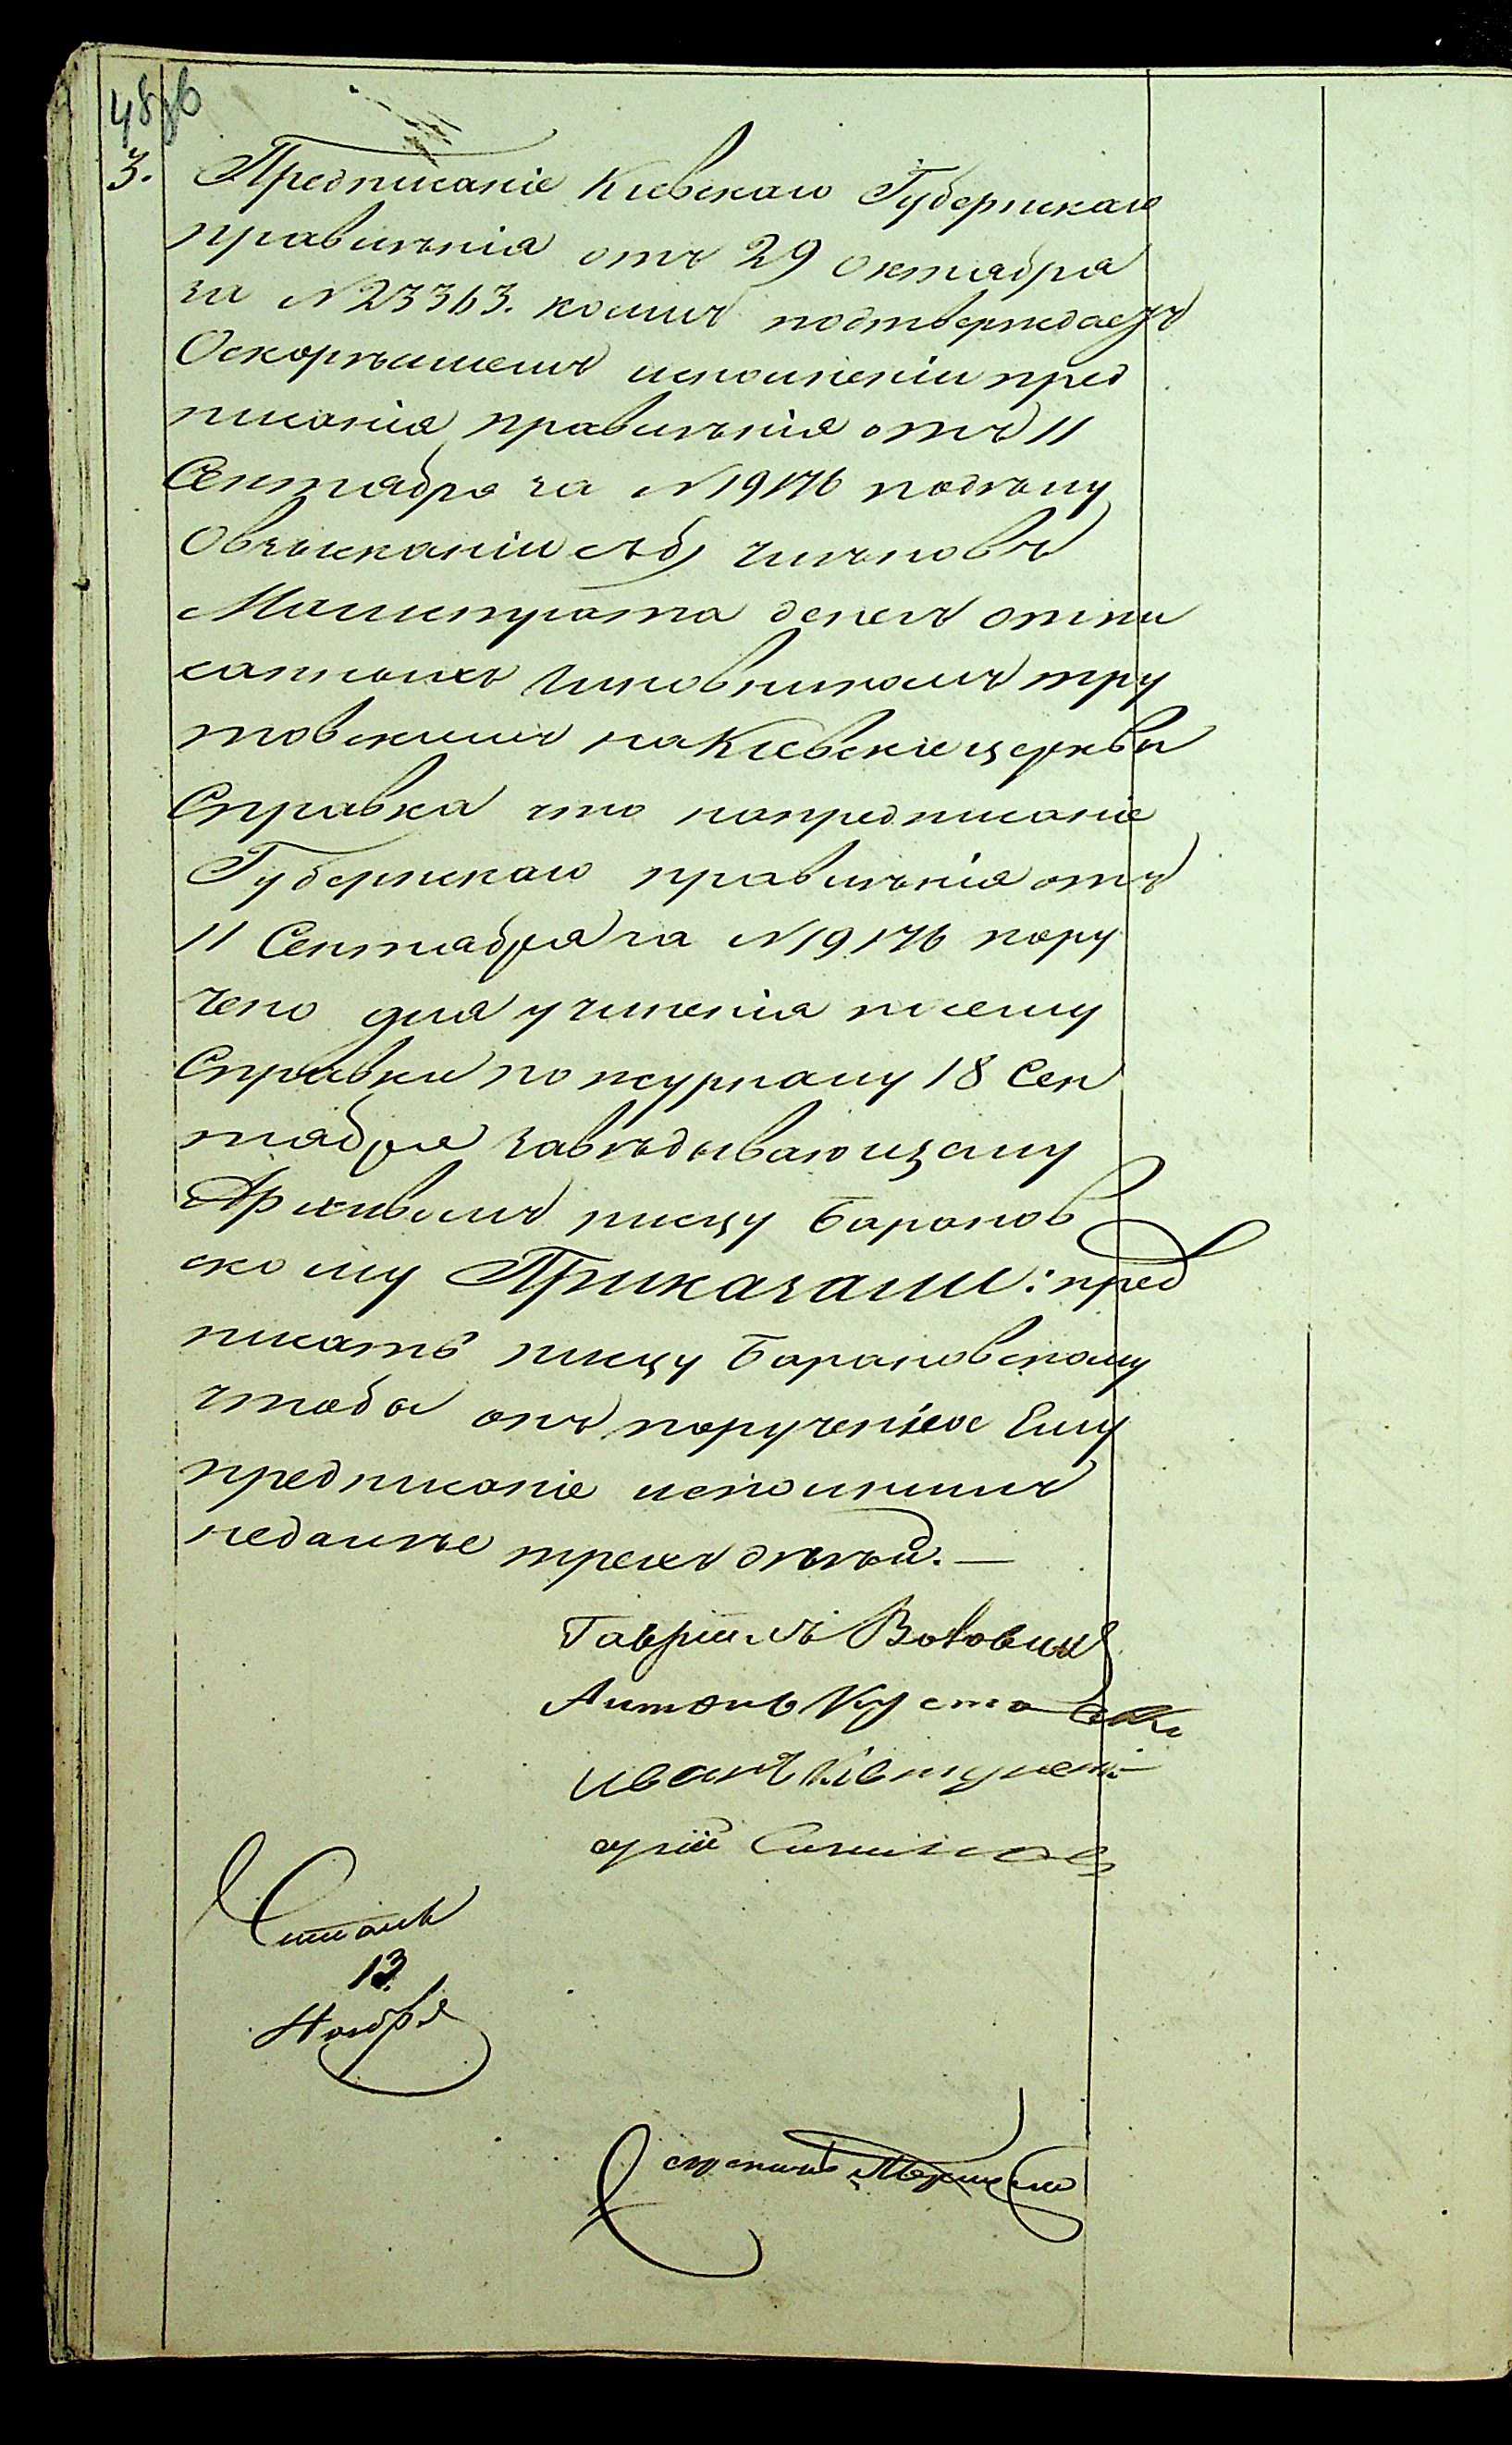 3. Предписаніе Кіевскаго Губернскаго
правленія отъ 29 октября
за N 23363. коимъ подтверждаетъ
Оскорѣйшемъ исполненіи пред
писанія правленія отъ 11
Сентября за N 19176 подѣлу
Овзысканіи съ б) членовъ
Магистрата денегъ отпи
санныхъ чиновникомъ тру
товскимъ на Кіевскіе церкви
Справка что напредписаніе
Губернскаго правленія отъ
11 Сентября за N 19176 пору
чено для учиненія посему
Справки по журналу 18 Сен
тября завѣдывающему
Архивомъ писцу Баранов
скому Приказали: пред
писать писцу Барановскому
чтобы онъ порученное Ему
предписаніе исполнилъ
недалѣе трехъ дней. —
Гавріилъ
Антонъ
Иванъ
Читалъ
13
Ноября